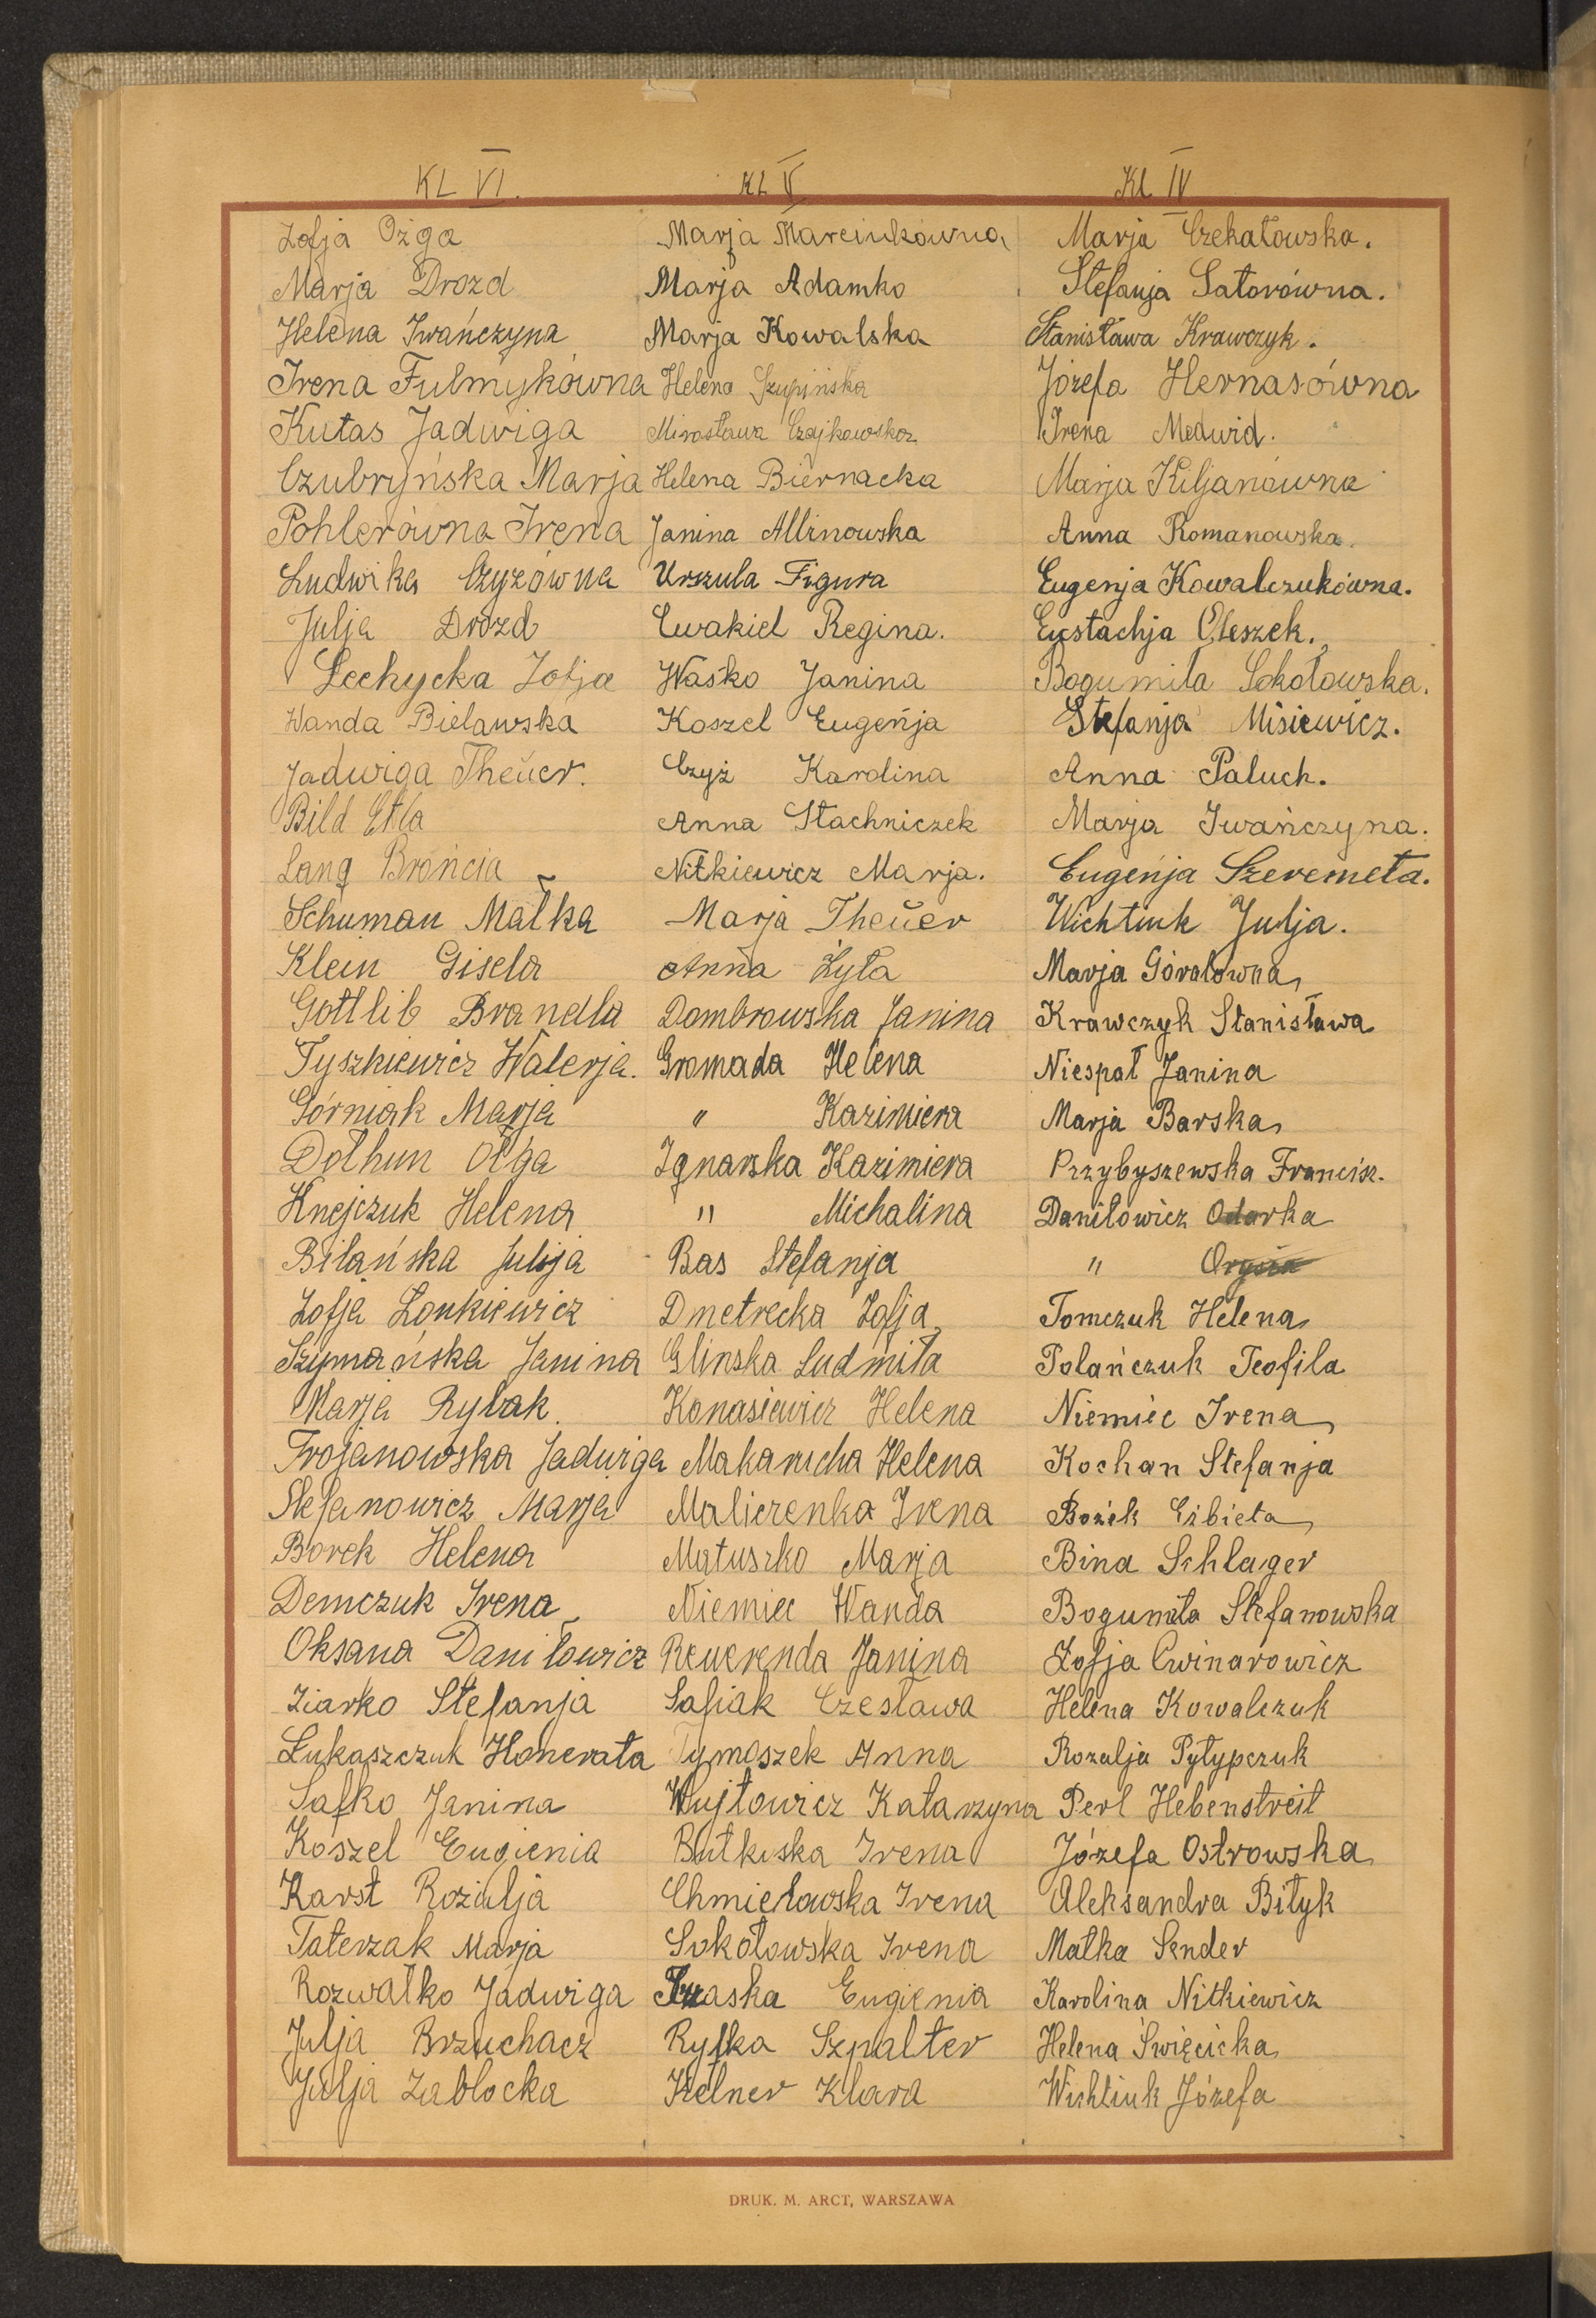 KL VI.
Zofja Ożga
Marja Drozd
Helena Iwańczyna
Irena Fulmykówna
Kutas Jadwiga
Czubryńska Marja
Pohlerówna Irena
Ludwika Czyżówna
Julja Drozd
Lechycka Zofja
Wanda Bielawska
Jadwiga Theüer.
Bild Etla
Lang Brońcia
Schuman Małka
Klein Gisela
Gottlib Brandla
Tyszkiewicz Walerja.
Górniak Marja
Dołhun Olga
Knejczuk Helena
Bilańska Julja
Zofja Lonkiewicz
Szymańska Janina
Marja Rybak.
Trojanowska Jadwiga
Stefanowicz Marja
Borek Helena
Demczuk Irena
Oksana Daniłowicz
Ziarko Stefanja
Łukaszczuk Honerata
Safko Janina
Koszel Eugienia
Karst Rozalja
Taterzak Marja
Rozwałko Jadwiga
Julja Brzuchacz
Julja Zabłocka
KL V
Marja Marcinkówna
Marja Adamko
Marja Kowalska
Helena Szupińska
Mirosława Czajkowska
Helena Biernacka
Janina Allinowska
Urszula Figura
Ćwakiel Regina.
Waśko Janina
Koszel Eugenja
Czyż Karolina
Anna Stachniczek
Nitkiewicz Marja.
Marja Theüer
Anna Żyła
Dombrowska Janina
Gromada Helena
" Kazimiera
Ignarska Kazimiera
" Michalina
Bas Stefanja
Dmetrecka Zofja
Glinska Ludmiła
Konasiewicz Helena
Makarucha Helena
Malicrenka Irena
Matuszko Marja
Niemiec Wanda
Rewerenda Janina
Safiak Czesława
Tymoszek Anna
Wujtowicz Katarzyna
Butkiska Irena
Chmielowska Irena
Sokołowska Irena
Eugienia
Ryfka Szpalter
Kelner Klara
Kl IV
Marja Czekałowska.
Stefanja Satorówna.
Stanisława Krawczyk.
Józefa Hernasówna
Irena Medwid.
Marja Kiljanówna
Anna Romanowska.
Eugenja Kowalczukówna.
Eustachja Oleszek.
Bogumiła Sokołowska.
Stefanja Misiewicz.
Anna Paluch.
Marja Iwańczyna.
Eugenja Szeremeta.
Wichtiuk Julja.
Marja Góralówna
Krawczyk Stanisława
Niespał Janina
Marja Barska
Przybyszewska Francisz.
Daniłowicz Odarka
" Orysia
Tomczuk Helena
Polańczuk Teofila
Niemiec Irena
Kochan Stefanja
Bożek Elżbieta
Bina Schlager
Bogumiła Stefanowska
Zofja Cwinarowicz
Helena Kowalczuk
Rozalja Pytypczuk
Perl Hebenstreit
Józefa Ostrowska
Aleksandra Bityk
Małka Sender
Karolina Nitkiewicz
Helena Święcicka
Wichtiuk Józefa
DRUK. M. ARCT, WARSZAWA